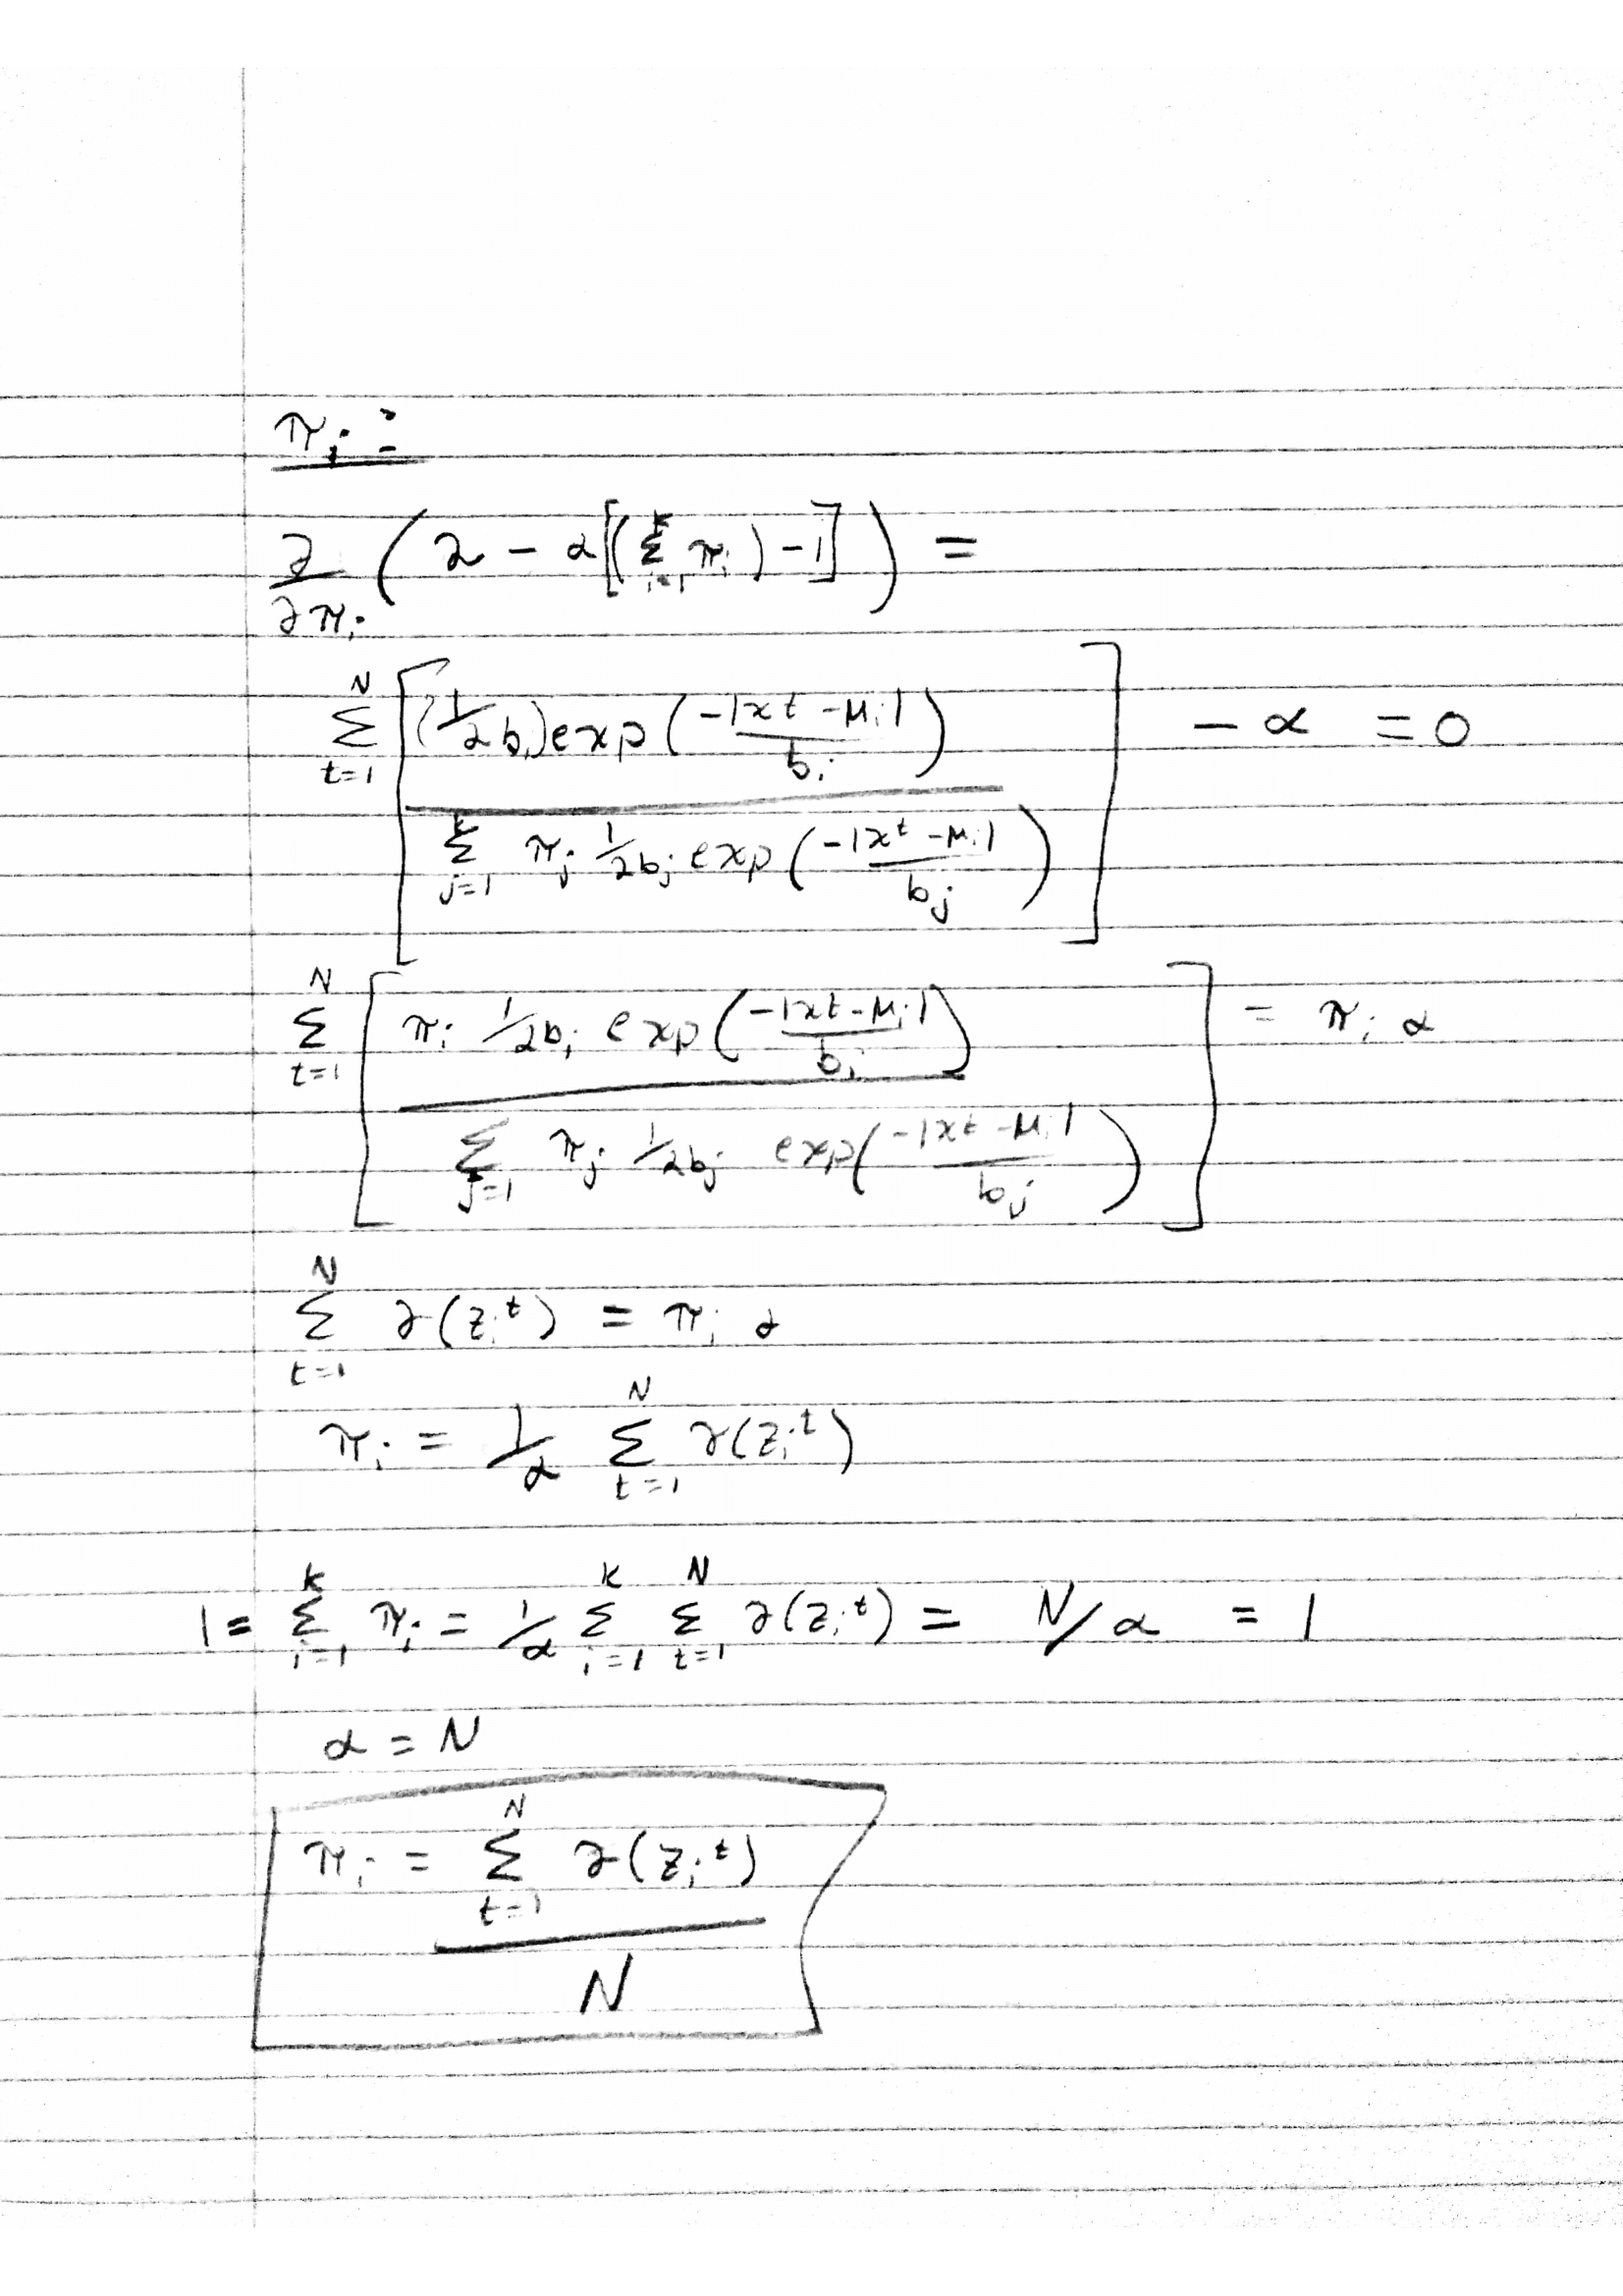 πᵢ :
∂/∂πᵢ ( ℒ - α[(Σᵢ₌₁ᴷ πᵢ) - 1] ) =
Σₜ₌₁ᴺ [ (1/2bᵢ) exp( -|xᵗ - μᵢ| / bᵢ ) / Σⱼ₌₁ᴷ πⱼ 1/2bⱼ exp( -|xᵗ - μᵢ| / bⱼ ) ] - α = 0
Σₜ₌₁ᴺ [ πᵢ 1/2bᵢ exp( -|xᵗ - μᵢ| / bᵢ ) / Σⱼ₌₁ πⱼ 1/2bⱼ exp( -|xᵗ - μᵢ| / bⱼ ) ] = πᵢ α
Σₜ₌₁ᴺ γ(zᵢᵗ) = πᵢ α
πᵢ = 1/α Σₜ₌₁ᴺ γ(zᵢᵗ)
1 = Σᵢ₌₁ᴷ πᵢ = 1/α Σᵢ₌₁ᴷ Σₜ₌₁ᴺ γ(zᵢᵗ) = N/α = 1
α = N
πᵢ = Σₜ₌₁ᴺ γ(zᵢᵗ) / N